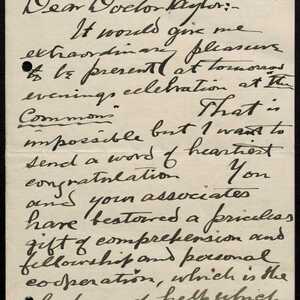 Dear Doctor Taylor:-
It would give me
extraordinary pleasure
to be present at tomorrow
evenings celebration at "The
Commons" That is
impossible but I want to
send a word of heartiest
congratulation You
and your associates
have bestowed a priceless
gift of comprehension and
fellowship and personal
cooperation, which is the
of which